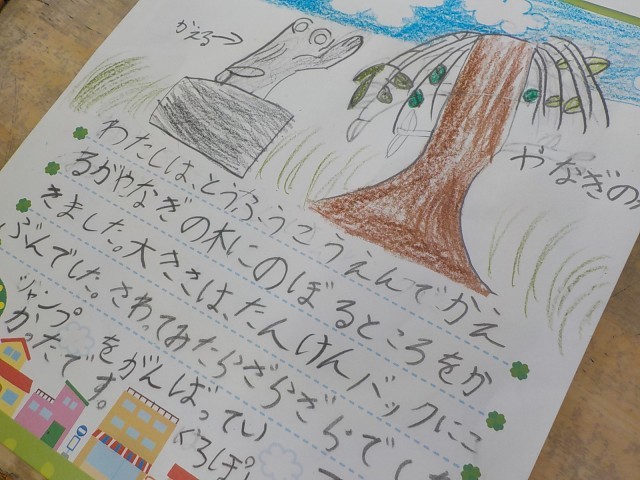 かえる→
やなぎの木
わたしは、とうふ、うこうえんでかえ
るがやなぎの木にのぼるところをか
きました。大きさは、たんけんバックにこ
ぶんでした。さわってみたらざらざらでし
ジャンプをがんばってい
かったです。
ぐろぽ